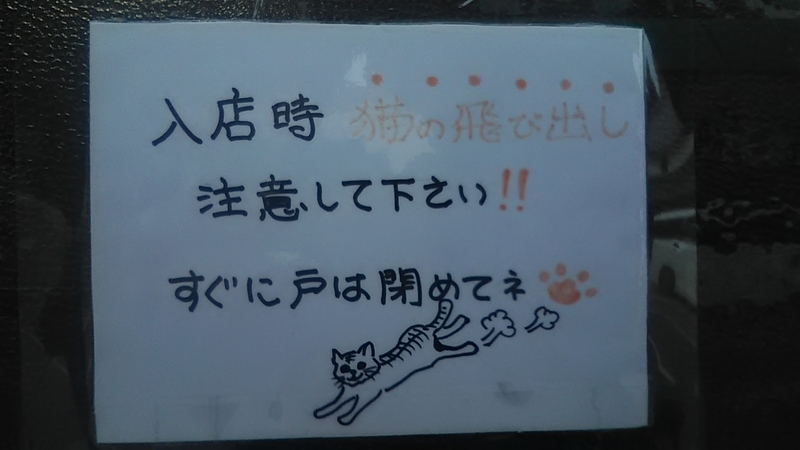 入店時 猫の飛び出し
注意して下さい!!
すぐに戸は閉めてネ